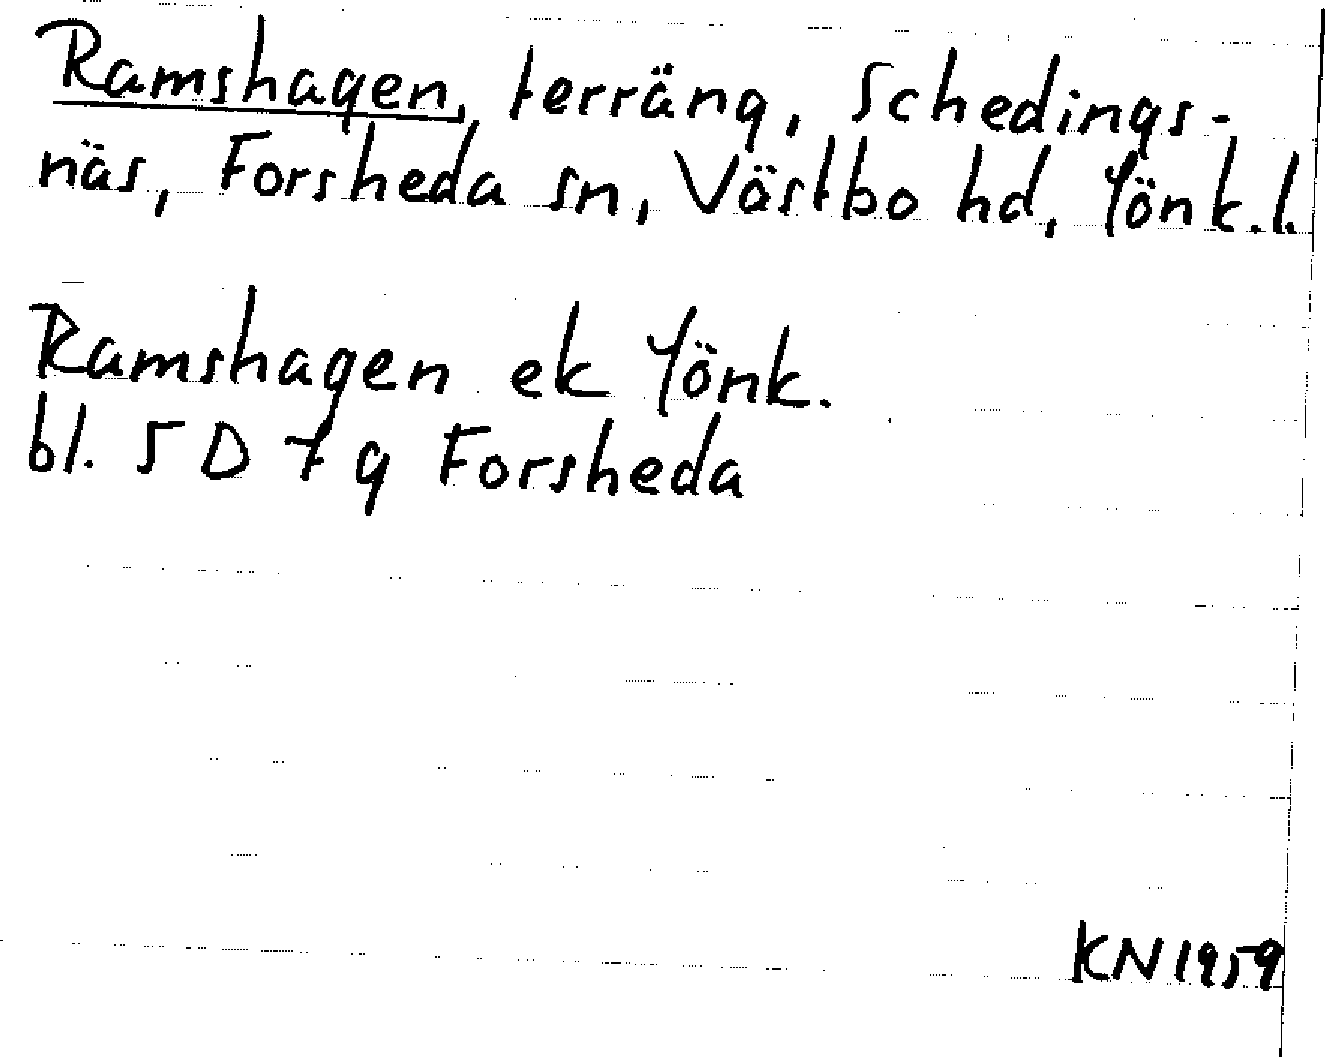 Ramshagen, terräng, Schedings-
näs, Forsheda sn, Västbo hd, Jönk.l.
Ramshagen ek Jönk.
bl. 5 D 7 g Forsheda
KN 1959